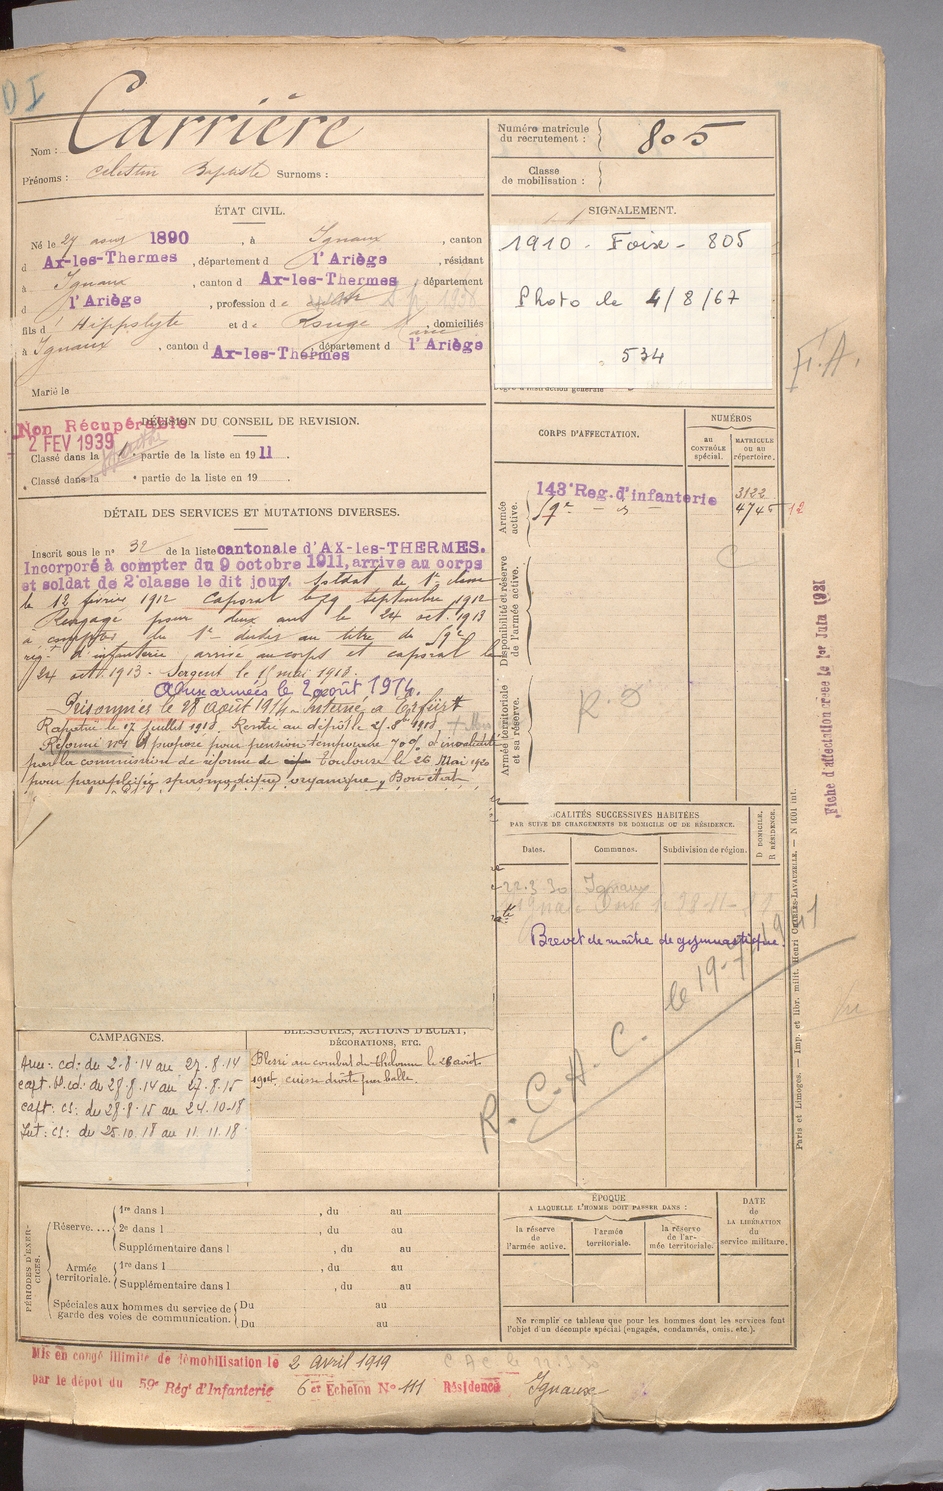 DI
Nom : Carrière
Prénoms : Celestin Baptiste Surnoms :
Numéro matricule du recrutement : 805
Classe de mobilisation :
ÉTAT CIVIL.
Né le 27 aout 1890, à Ignaux, canton
d Ax-les-Thermes, département d l'Ariège, résidant
à Ignaux, canton d Ax-les-Thermes, département
d l'Ariège, profession de
fils d' Hippolyte et de Rouge, domiciliés
à Ignaux, canton d Ax-les-Thermes, département d l'Ariège
Marié le
SIGNALEMENT.
1910 - Foix - 805
Photo le 4/8/67
534
F.A.
DÉCISION DU CONSEIL DE REVISION.
Non Récupérable
2 FEV 1939
Classé dans la 1e partie de la liste en 1911.
Classé dans la partie de la liste en 19
DÉTAIL DES SERVICES ET MUTATIONS DIVERSES.
Inscrit sous le n° 32 de la liste cantonale d'AX-les-THERMES.
Incorporé à compter du 9 octobre 1911, arrive au corps
et soldat de 2e classe le dit jour. Soldat de 1e classe
le 12 février 1912 Caporal le 29 septembre 1912
Rengagé pour deux ans le 24 oct. 1913
à compter du 1er dudit au titre du 59e
régt d'infanterie arrivé au corps et caporal le
24 oct. 1913. Sergent le
Aux armées le 2 août 1914.
Prisonnier le 28 Août 1914. Interné à Erfürt
Rapatrié le 17 juillet 1918. Rentré au dépôt le
Réformé n°1 et proposé pour pension temporaire 70% d'invalidité
par la commission de réforme de Toulouse le 26 Mai 1920
pour paraplégie spasmodique organique, Bon état
CORPS D'AFFECTATION.
NUMÉROS
au CONTRÔLE spécial.
MATRICULE ou au répertoire.
Armée active.
143e Reg. d'infanterie 3122
59e - d° - 4745 12
Disponibilité et réserve de l'armée active.
Armée territoriale et sa réserve.
LOCALITÉS SUCCESSIVES HABITÉES
PAR SUITE DE CHANGEMENTS DE DOMICILE OU DE RÉSIDENCE.
Dates.
Communes.
Subdivision de région.
D DOMICILE.
R RÉSIDENCE.
22.3.30 Ignaux
Brevet de maître de gymnastique.
R. C. A. C. le 19-7-1941
Fiche d'affectation créée le 1er Juin 1931
Paris et Limoges. — Imp. et libr. milit. Henri CHARLES-LAVAUZELLE. — N 1001 int.
CAMPAGNES.
cd: du 2.8.14 au 27.8.14
capt. bl. cd: du 28.8.14 au 27.8.15
capt: cs: du 28.8.15 au 24.10.18
Int: cs: du 25.10.18 au 11.11.18
BLESSURES, ACTIONS D'ÉCLAT,
DÉCORATIONS, ETC.
Blessé au combat de Thelonne le 28 août
1914, cuisse droite par balle
PÉRIODES D'EXERCICES.
Réserve....
1re dans l , du au
2e dans l , du au
Supplémentaire dans l , du au
Armée territoriale.
1re dans l , du au
Supplémentaire dans l , du au
Spéciales aux hommes du service de garde des voies de communication.
Du au
Du au
ÉPOQUE
A LAQUELLE L'HOMME DOIT PASSER DANS :
la réserve de l'armée active.
l'armée territoriale.
la réserve de l'armée territoriale.
DATE de LA LIBÉRATION du service militaire.
Ne remplir ce tableau que pour les hommes dont les services font
l'objet d'un décompte spécial (engagés, condamnés, omis, etc.).
Mis en congé illimité de démobilisation le 2 avril 1919
par le dépot du 59e Régt d'Infanterie 6er Echelon N° 111 Résidence Ignaux